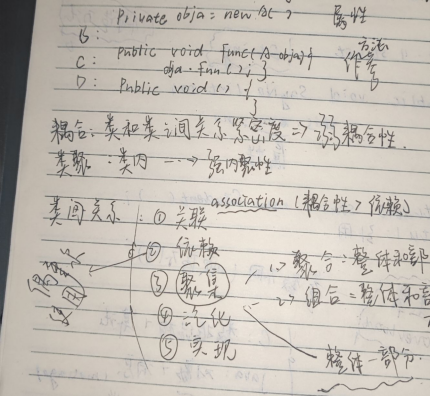 Private obja = new A( ) 属性
B:
C: public void func(A obja){ 方法
obja.fun( ); } 作参
D: Public void ( ) {
}
耦合: 类和类之间关系紧密度 => 弱耦合性.
类聚 : 类内 ---> 强内聚性
类间关系 : ① 关联 association (耦合性 > 依赖)
② 依赖
③ 聚集 1> 聚合: 整体和部
2> 组合 = 整体和部
④ 泛化
⑤ 实现 整体—部分.